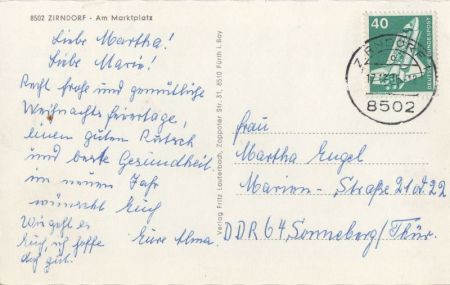 8502 ZIRNDORF - Am Marktplatz
Liebe Martha!
Liebe Marie!
Recht frohe und gemütliche
Weihnachtsfeiertage,
einen guten Rutsch
und beste Gesundheit
im neuen Jahr
wünscht Euch
Eure Alma.
Wie geht es
Euch, ich hoffe
doch gut.
Verlag Fritz Lauterbach, Zoppoter Str. 31, 8510 Fürth i. Bay
40
DEUTSCHE BUNDESPOST
ZIRNDORF
8502
Frau
Martha Engel
Marien-Straße 21 od. 22
DDR 64 Sonneberg/Thür.